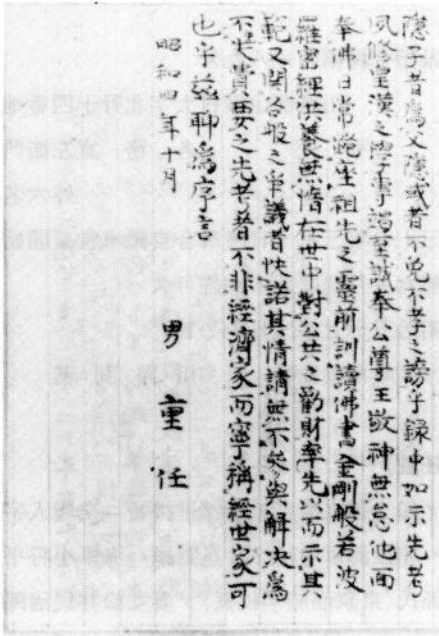 應子者爲父隱或者不免不孝之謗乎録中如示先考
夙修皇漢之學專竭至誠奉公尊王敬神無怠他面
奉佛日常跪座祖先之靈前訓讀佛書金剛般若波
羅密經供養無惰在世中對公共之勸財率先以而示其
範又関各般之爭議者快諾其情請無不參與解决爲
不失貴要之先考者不非經濟家而寧稱經世家可
也乎茲聊爲序言
昭和四年十月
男 重任